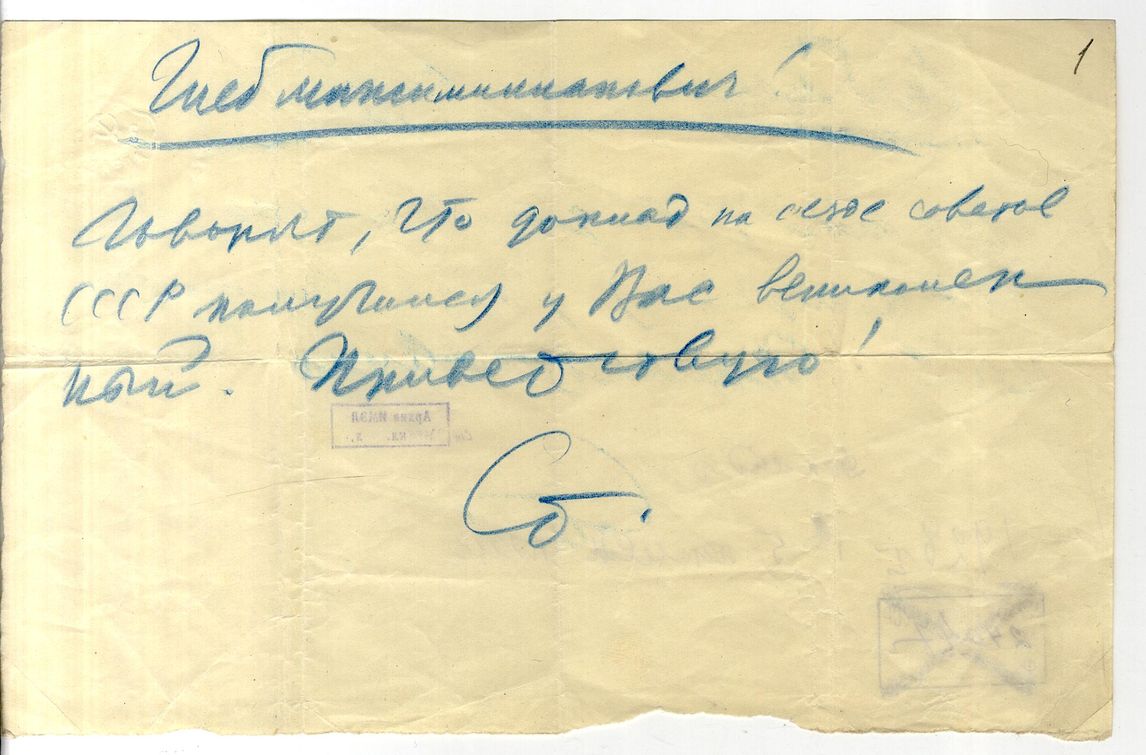 1
Глеб Максимилианович!
Говорят, что доклад на съезде советов
СССР получился у Вас великолеп
ный. Приветствую!
Ст.
Архив ИМЭЛ